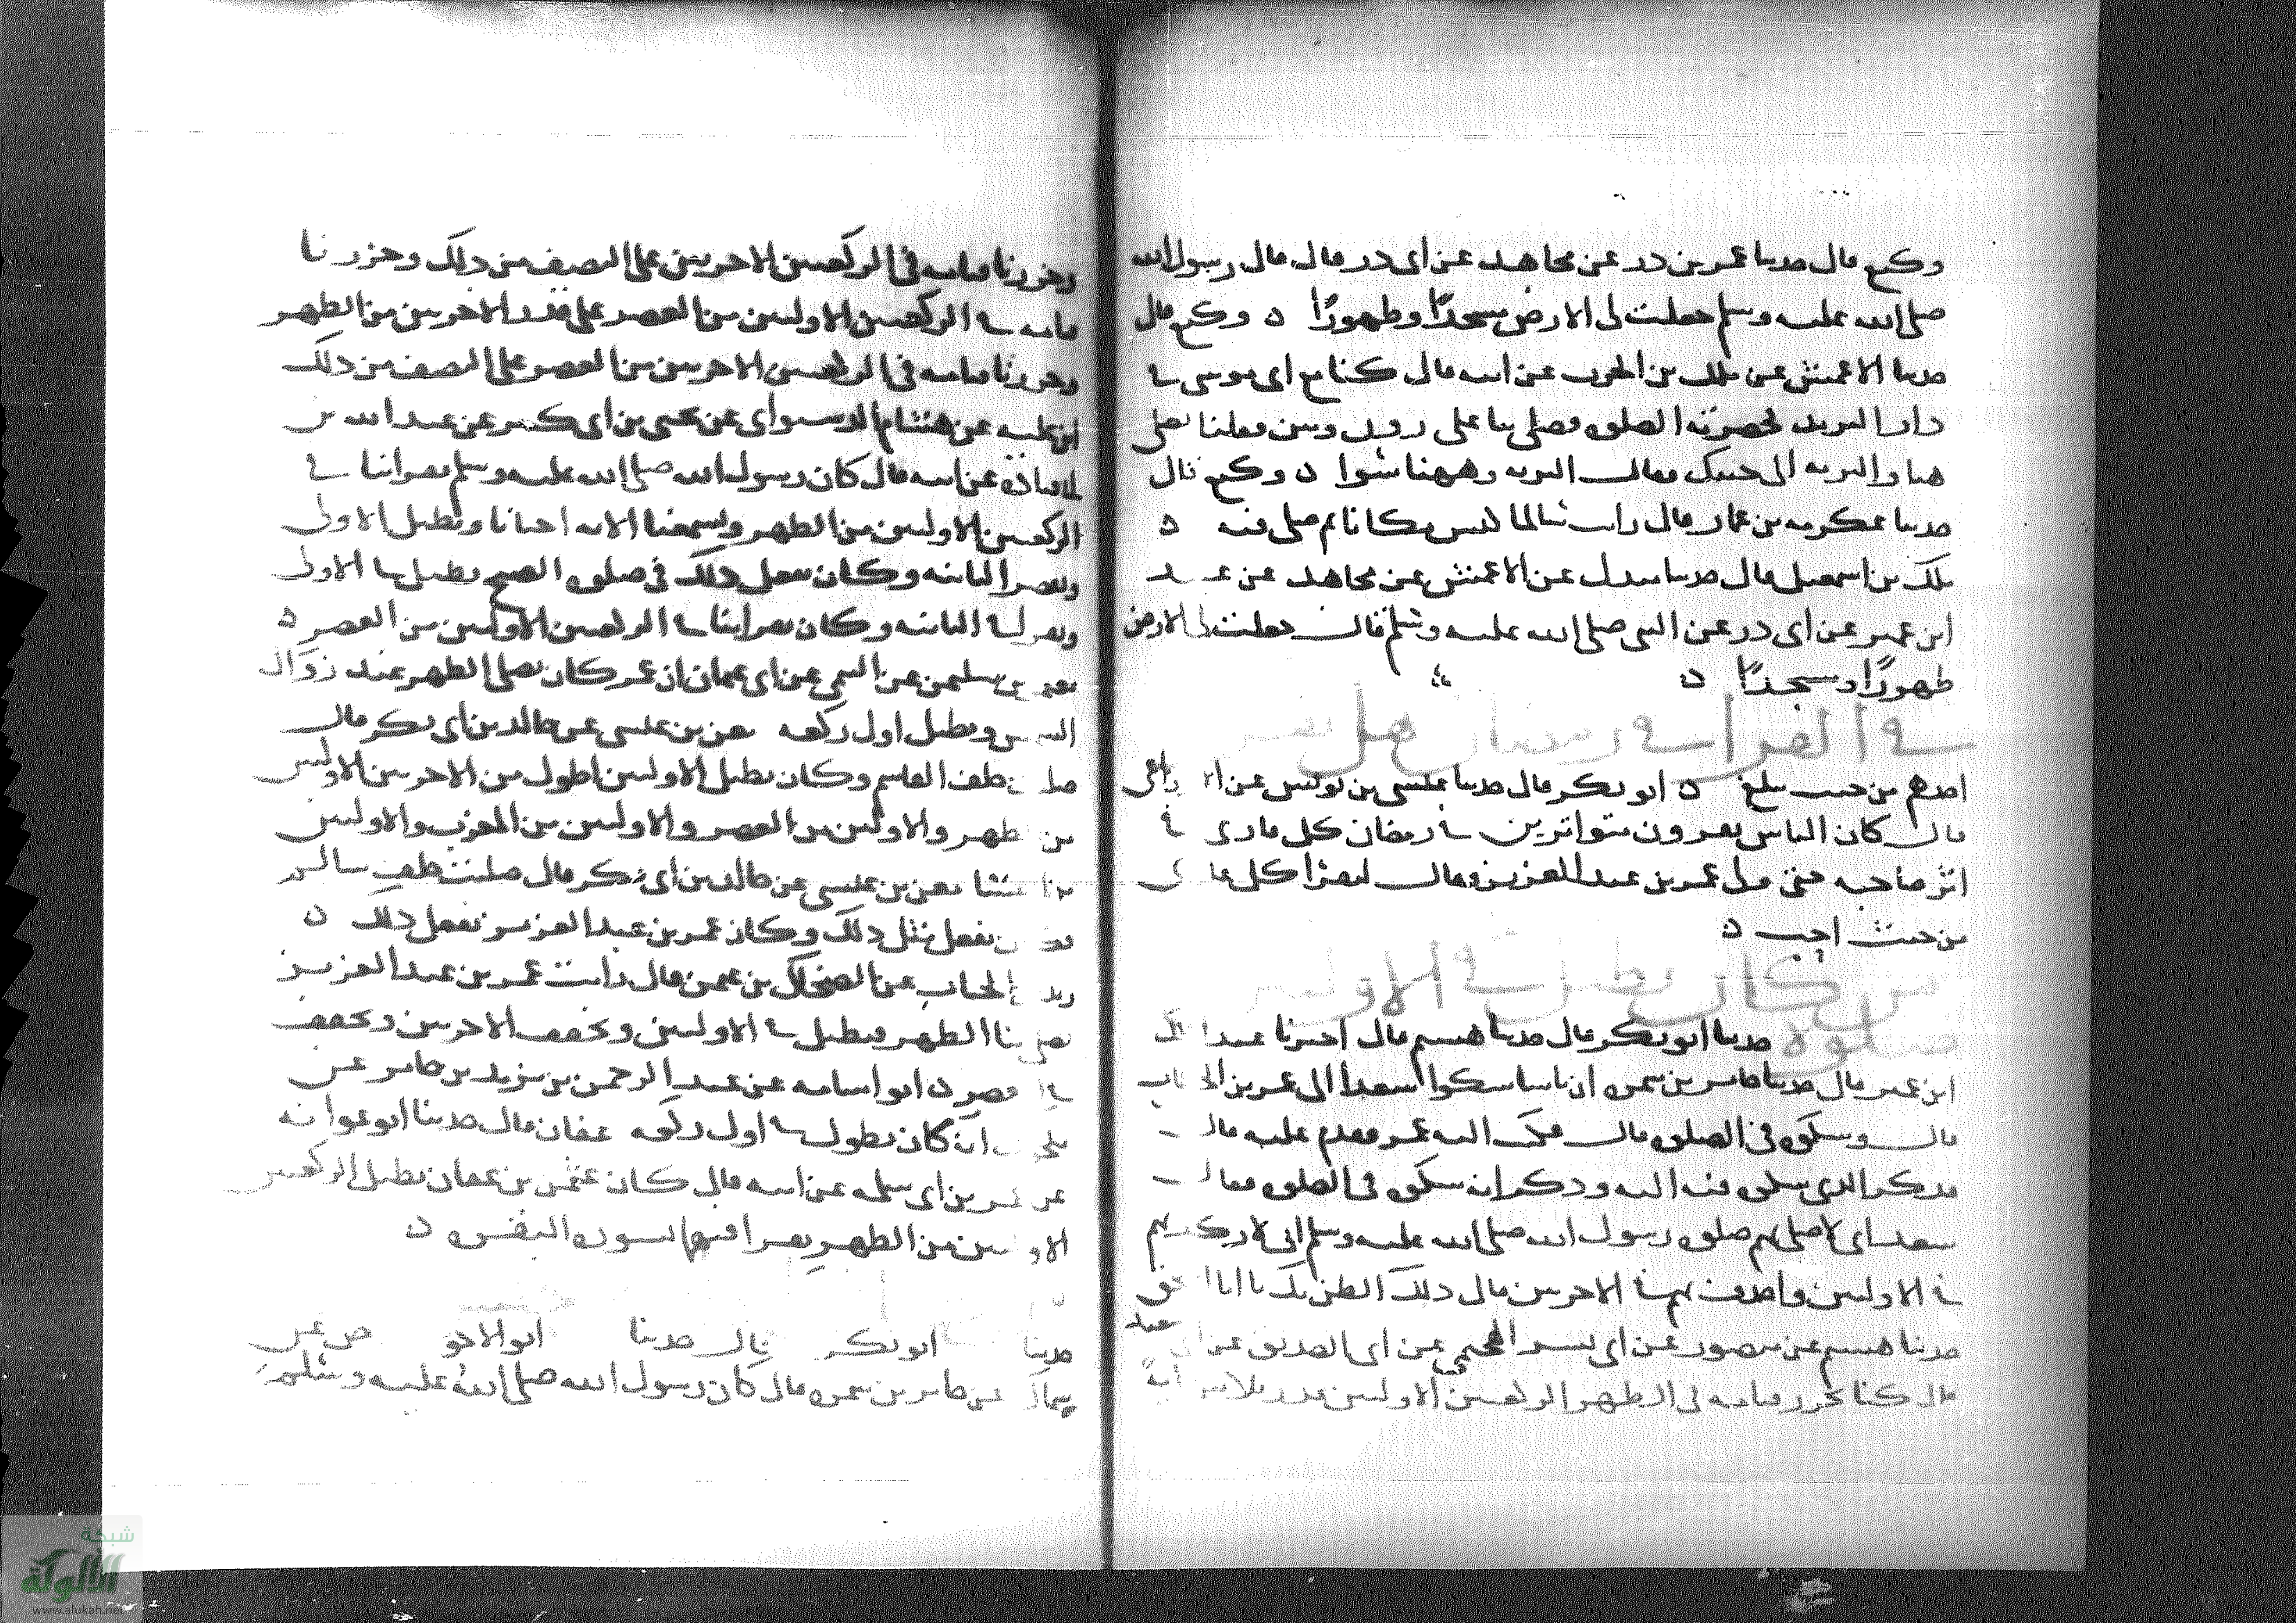 وكيع قال حدثنا عمر بن ذر عن مجاهد عن ابى ذر قال قال رسول الله
صلى الله عليه وسلم جعلت لى الارض مسجدًا وطهورًا ه وكيع قال
حدثنا الاعمش عن ملك بن الحرث عن ابيه قال كنا مع ابى موسى فى
دار البريد فحضرته الصلوه فصلى بنا على روث وتبن فقلنا تصلى
هنا والبريه الى جنبك فقال البريه وههنا سوا ه وكيع قال
حدثنا عكرمه بن عمار قال رايت سالما كنس مكانا ثم صلى فيه ه
ملك بن اسمعيل قال حدثنا مندل عن الاعمش عن مجاهد عن عبيد
ابن عمير عن ابى ذر عن النبى صلى الله عليه وسلم قال جعلت لى الارض
طهورًا ومسجدًا ه
فى القراه فى رمضان
احدهم من حيث بلغ ه ابو بكر قال حدثنا عيسى بن يونس عن
قال كان الناس يقرون متواترين فى رمضان كل قارى فى
اثر صاحبه حتى ولى عمر بن عبد العزيز فقال ليقرا كل قارى
من حيث احب ه
من كان يطيل فى الاوليين
حدثنا ابو بكر قال حدثنا هشيم قال اخبرنا عبد الملك
ابن عمير قال حدثنا جابر بن سمره ان ناسا شكوا سعدا الى عمر بن الخطاب
قال وشكوه فى الصلوه قال فكتب اليه عمر فقدم عليه قال
فذكر الذى شكوه فيه اليه وذكر انه شكوه فى الصلوه فقال
سعد انى لاصلى بهم صلوه رسول الله صلى الله عليه وسلم انى لاركد بهم
فى الاوليين واحذف بهم فى الاخريين قال ذلك الظن بك يا ابا اسحق
حدثنا هشيم عن منصور عن ابى بشر الهجيمى عن ابى الصديق عن ابى سعيد
قال كنا نحزر قيامه فى الظهر الركعتين الاوليين قدر ثلاثين ايه
وحزرنا قيامه فى الركعتين الاخريين على النصف من ذلك وحزرنا
قيامه فى الركعتين الاوليين من العصر على قدر الاخريين من الظهر
وحزرنا قيامه فى الركعتين الاخريين من العصر على النصف من ذلك
ابن عليه عن هشام الدستواى عن يحيى بن ابى كثير عن عبد الله بن
ابى قتاده عن ابيه قال كان رسول الله صلى الله عليه وسلم يقرا بنا فى
الركعتين الاوليين من الظهر ويسمعنا الايه احيانا ويطيل الاولى
ويقصر الثانيه وكان يفعل ذلك فى صلوه الصبح يطيل فى الاولى
ويقصر فى الثانيه وكان يقرا بنا فى الركعتين الاوليين من العصر ه
معتمر بن سليمن عن التيمى عن ابى عثمان ان عمر كان يصلى الظهر عند زوال
الشمس ويطيل اول ركعه معن بن عيسى عن خالد بن ابى بكر قال
صليت خلف القاسم وكان يطيل الاوليين اطول من الاخريين الاوليين
من الظهر والاوليين من العصر والاوليين من المغرب والاوليين
من العشا معن بن عيسى عن خالد بن ابى بكر قال صليت خلف سالم
فكان يفعل مثل ذلك وكان عمر بن عبد العزيز يفعل ذلك ه
زيد بن الحباب عن الضحاك بن عثمن قال رايت عمر بن عبد العزيز
يصلى بنا الظهر فيطيل فى الاوليين ويخفف الاخريين ويخفف
فى العصر ه ابو اسامه عن عبد الرحمن بن يزيد بن جابر عن
مكحول انه كان يطول فى اول ركعه عفان قال حدثنا ابو عوانه
عن عمر بن ابى سلمه عن ابيه قال كان عثمن بن عفان يطيل الركعتين
الاوليين من الظهر يقرا فيهما بسوره البقره ه
حدثنا ابو بكر قال حدثنا ابو الاحوص عن
سماك عن جابر بن سمره قال كان رسول الله صلى الله عليه وسلم
شبكة
الألوكة
www.alukah.net